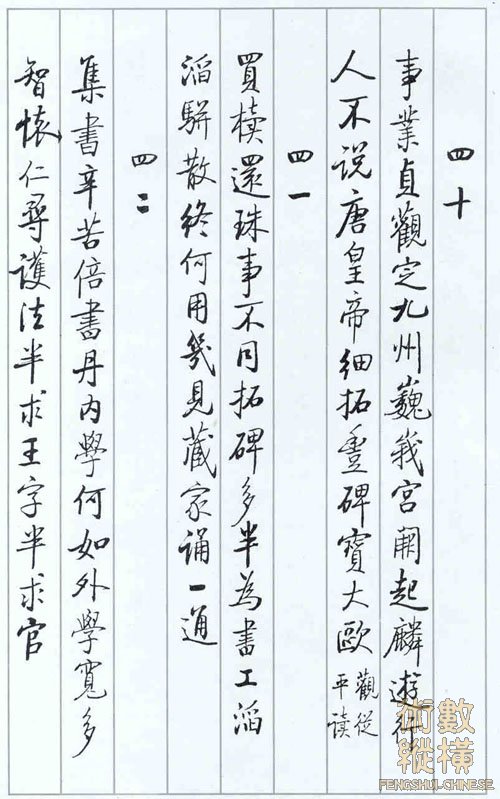 四十
事業貞觀定九州巍峩宮闕起麟遊行
人不说唐皇帝细拓豊碑寶大歐觀從平读
四一
買櫝還珠事不同拓碑多半為書工滔
滔駢散終何用幾見藏家誦一通
四二
集書辛苦倍書丹内學何如外學寬多
智懷仁尋護法半求王字半求官
術數
縱橫
FENGSHUI-CHINESE